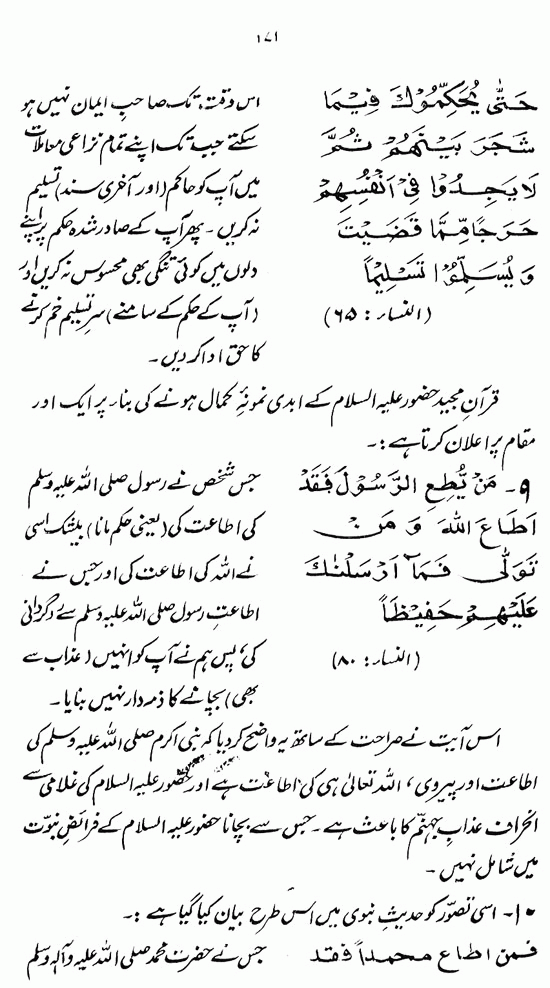 ۱۷۱
حَتّٰى يُحَكِّمُوْكَ فِيْمَا
شَجَرَ بَيْنَهُمْ ثُمَّ
لَا يَجِدُوْا فِيْ اَنْفُسِهِمْ
حَرَجًا مِّمَّا قَضَيْتَ
وَ يُسَلِّمُوْا تَسْلِيْمًا
(النساء : ۶۵)
اس وقت تک صاحبِ ایمان نہیں ہو
سکتے جب تک اپنے تمام نزاعی معاملات
میں آپ کو حاکم (اور آخری سند) تسلیم
نہ کریں ۔ پھر آپ کے صادر شدہ حکم پر اپنے
دلوں میں کوئی تنگی بھی محسوس نہ کریں اور
(آپ کے حکم کے سامنے) سرِ تسلیم خم کرنے
کا حق ادا کر دیں ۔
قرآنِ مجید حضور علیہ السلام کے ابدی نمونۂ کمال ہونے کی بناء پر ایک اور
مقام پر اعلان کرتا ہے :۔
۹۔ مَنْ يُّطِعِ الرَّسُوْلَ فَقَدْ
اَطَاعَ اللهَ وَ مَنْ
تَوَلّٰى فَمَآ اَرْسَلْنٰكَ
عَلَيْهِمْ حَفِيْظًا
(النساء : ۸۰)
جس شخص نے رسول صلی اللہ علیہ وسلم
کی اطاعت کی (یعنی حکم مانا) بیشک اسی
نے اللہ کی اطاعت کی اور جس نے
اطاعتِ رسول صلی اللہ علیہ وسلم سے روگردانی
کی، پس ہم نے آپ کو انہیں (عذاب سے
بھی) بچانے کا ذمہ دار نہیں بنایا ۔
اس آیت نے صراحت کے ساتھ یہ واضح کر دیا کہ نبی اکرم صلی اللہ علیہ وسلم کی
اطاعت اور پیروی ، اللہ تعالیٰ ہی کی اطاعت ہے اور حضور علیہ السلام کی غلامی سے
انحراف عذابِ جہنّم کا باعث ہے ۔ جس سے بچانا حضور علیہ السلام کے فرائضِ نبوّت
میں شامل نہیں ۔
۱۰۔ اسی تصوّر کو حدیثِ نبوی میں اس طرح بیان کیا گیا ہے :۔
فمن اطاع محمداً فقد
جس نے حضرت محمد صلی اللہ علیہ وآلہ وسلم